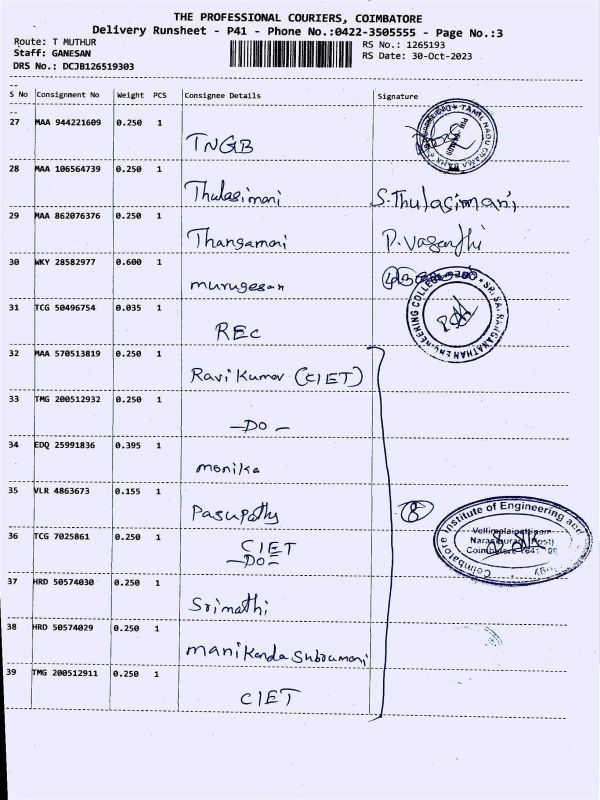 THE PROFESSIONAL COURIERS, COIMBATORE
Delivery Runsheet - P41 - Phone No.:0422-3505555 - Page No.:3
Route: T MUTHUR
RS No.: 1265193
Staff: GANESAN
RS Date: 30-Oct-2023
DRS No.: DCJB126519303
S No Consignment No Weight PCS Consignee Details Signature
27 MAA 944221609 0.250 1
TNGB
TAMIL NADU GRAMA BANK
28 MAA 106564739 0.250 1
Thulasimani S.Thulasimani
29 MAA 862076376 0.250 1
Thangamani P.Vasanthi
30 WKY 28582977 0.600 1
murugesan
31 TCG 50496754 0.035 1
REC
RANGANATHAN ENGINEERING COLLEGE
32 MAA 570513819 0.250 1
Ravi Kumar (CIET)
33 TMG 200512932 0.250 1
-DO-
34 EDQ 25991836 0.395 1
monika
35 VLR 4863673 0.155 1
Pasupathy
8
Coimbatore Institute of Engineering and
Vellimalaipattinam
Narasipuram (Post)
Coimbatore 641
36 TCG 7025861 0.250 1
CIET
-DO-
37 HRD 50574030 0.250 1
Srimathi
38 HRD 50574029 0.250 1
manikanda Subramani
39 TMG 200512911 0.250 1
CIET